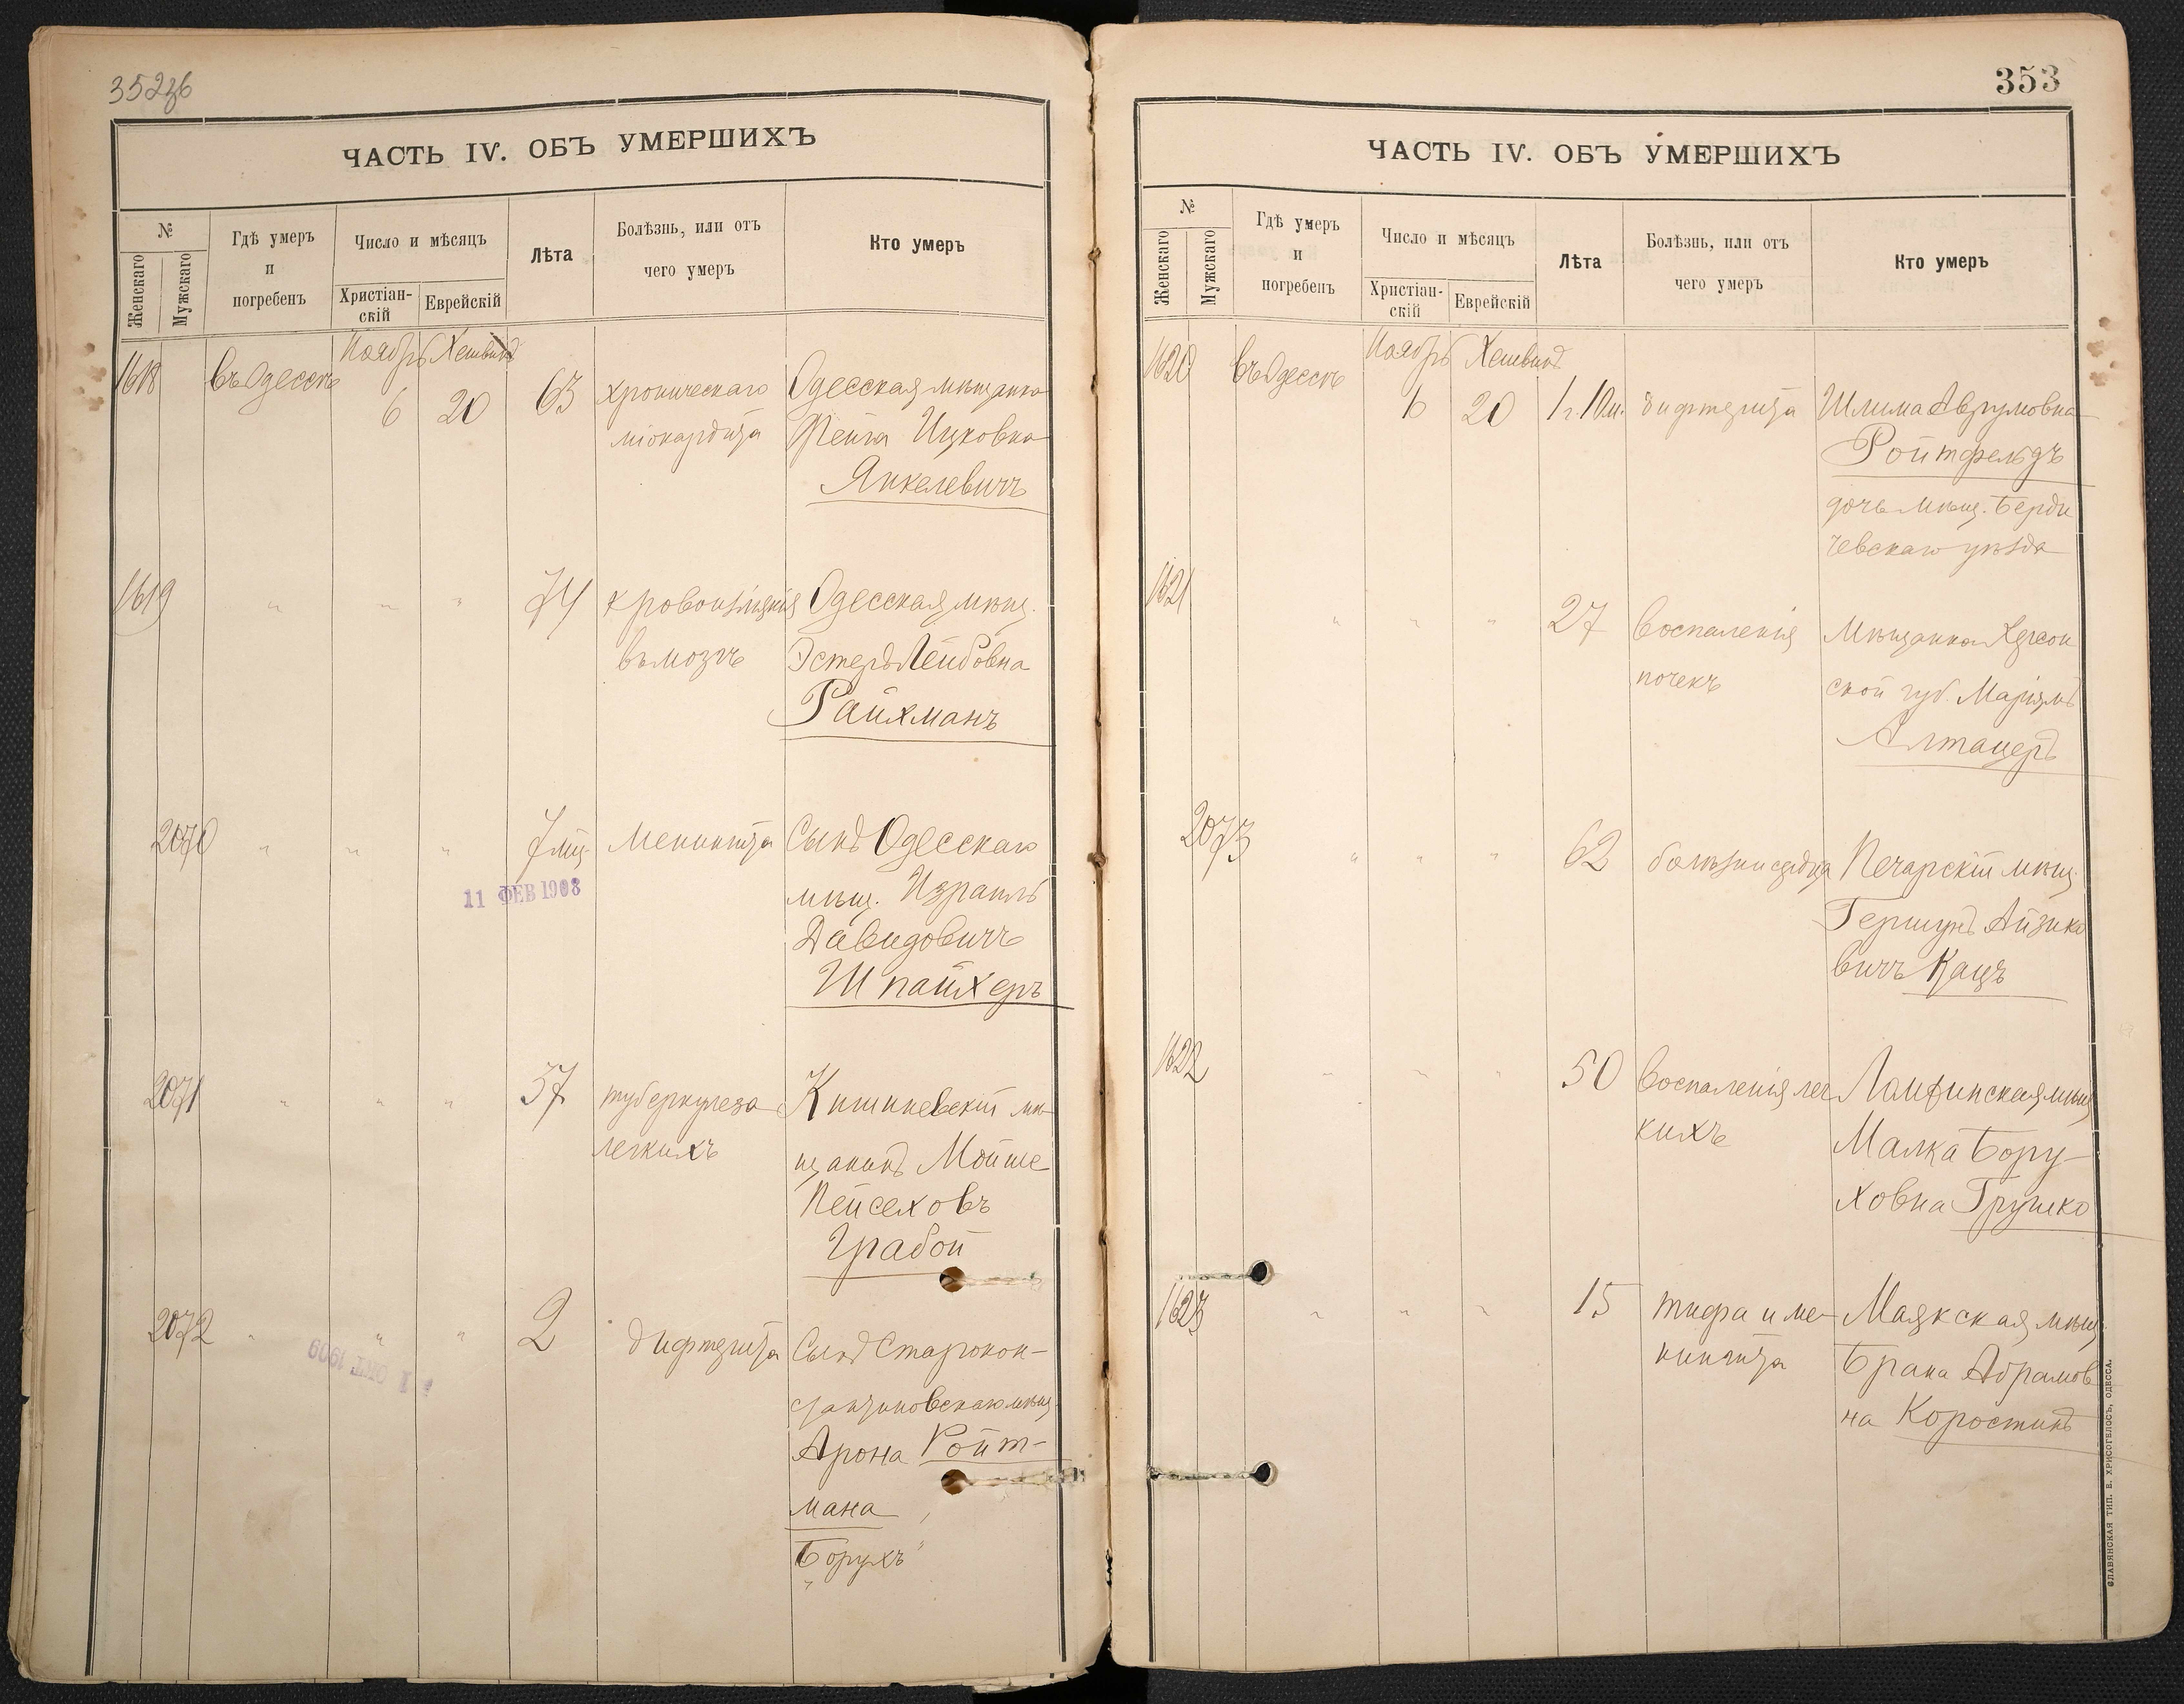 ЧАСТЬ IV. ОБЪ УМЕРШИХЪ
№
Женскаго
Мужскаго
Гдѣ умеръ
и
погребенъ
Число и мѣсяцъ
Христіан-
скій
Еврейскій
Лѣта
Болѣзнь, или отъ
чего умеръ
Кто умеръ
Ноябрь Хешванъ
1618 въ Одессѣ 6 20 63 хроническаго Одесская мѣщанка
міокардита Фейга Ицковна
Янкелевичъ
1619 " " " 74 кровоизліянія Одесская мѣщ.
въ мозгъ Эстеръ Лейбовна
Райхманъ
2070 " " " 7 мѣ. Менингита Сынъ Одесскаго
11 ФЕВ 1908
мѣщ. Израиль
Давидовичъ
Шпайхеръ
2071 " " " 37 туберкулеза Кишиневскій мѣ-
легкихъ щанинъ Мойше
Пейсеховъ
Грабой
2072 " " " 2 дифтерита Сынъ Старокон-
ОКТ 1909
стантиновскаго мѣщ.
Арона Ройт-
мана
"Борухъ"
353
ЧАСТЬ IV. ОБЪ УМЕРШИХЪ
№
Женскаго
Мужскаго
Гдѣ умеръ
и
погребенъ
Число и мѣсяцъ
Христіан-
скій
Еврейскій
Лѣта
Болѣзнь, или отъ
чего умеръ
Кто умеръ
Ноябрь Хешванъ
1620 въ Одессѣ 6 20 1 г. 10 м. дифтерита Шлима Аврумовна
Ройтфельдъ
дочь мѣщ. Берди
чевскаго уѣзда
1621 " " " 27 Воспаленія Мѣщанка Херсон
почекъ ской губ. Маріямъ
Алтацеръ
2073 " " " 62 болѣзни сердца Печарскій мѣщ.
Гершунъ Айзико
вичъ Кацъ
1622 " " " 50 Воспаленія лег мѣщ
кихъ Малка Бору-
ховна Грушко
1623 " " " 15 тифа и ме- Маякская мѣщ.
нингита Брана Абрамов
на Коростинъ
СЛАВЯНСКАЯ ТИП. Е. ХРИСОГЕЛОСЪ, ОДЕССА.